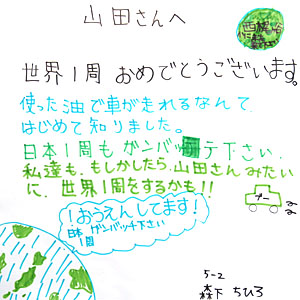 山田さんへ
世界1周 おめでとうございます。
使った油で車が走れるなんて
はじめて知りました。
日本1周も ガンバッテ下さい。
私達も、もしかしたら、山田さんみたい
に、世界1周をするかも!!
!おうえんしてます!
日本 ガンバッテ下さい
1周
5-2
森下 ちひろ